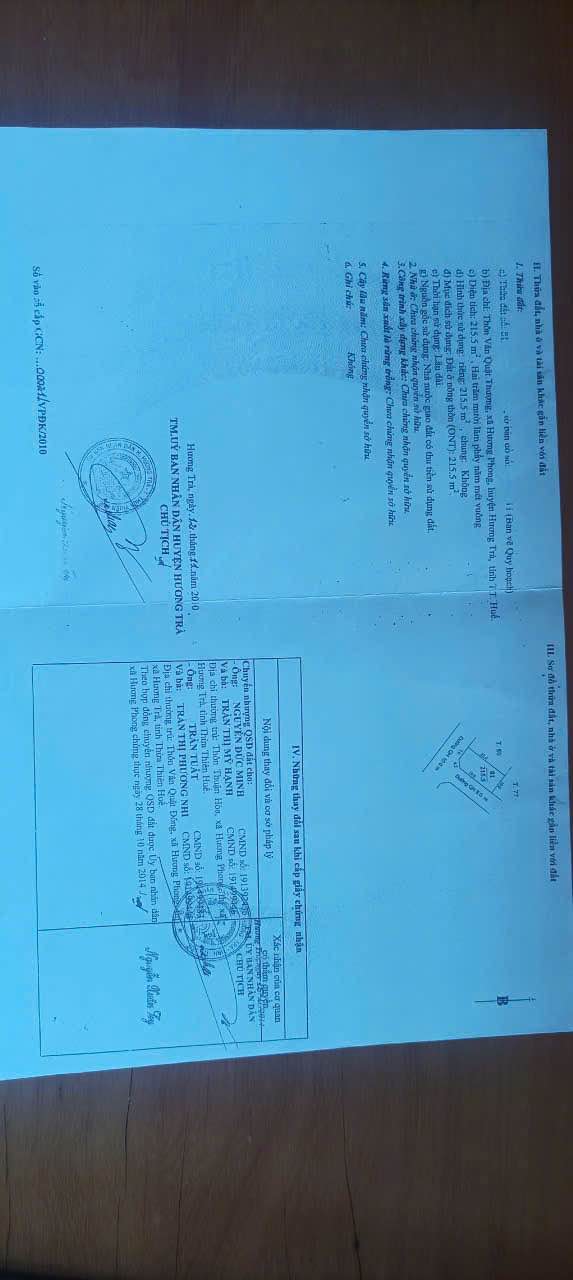 II. Thửa đất, nhà ở và tài sản khác gắn liền với đất
1. Thửa đất:
a) Thửa đất số: 81 , tờ bản đồ số: 11 (Bản vẽ Quy hoạch)
b) Địa chỉ: Thôn Vân Quật Thượng, xã Hương Phong, huyện Hương Trà, tỉnh T.T. Huế.
c) Diện tích: 215.5 m², Hai trăm mười lăm phẩy năm mét vuông
d) Hình thức sử dụng: riêng: 215.5 m², chung: Không
đ) Mục đích sử dụng: Đất ở nông thôn (ONT): 215.5 m².
e) Thời hạn sử dụng: Lâu dài.
g) Nguồn gốc sử dụng: Nhà nước giao đất có thu tiền sử dụng đất.
2. Nhà ở: Chưa chứng nhận quyền sở hữu.
3. Công trình xây dựng khác: Chưa chứng nhận quyền sở hữu.
4. Rừng sản xuất là rừng trồng: Chưa chứng nhận quyền sở hữu.
5. Cây lâu năm: Chưa chứng nhận quyền sở hữu.
6. Ghi chú: Không
Hương Trà, ngày 12 tháng 11 năm 2010
TM.UỶ BAN NHÂN DÂN HUYỆN HƯƠNG TRÀ
CHỦ TỊCH
Số vào sổ cấp GCN: ...00021/VPĐK/2010
III. Sơ đồ thửa đất, nhà ở và tài sản khác gắn liền với đất
B
T. 77
81
215.5
IV. Những thay đổi sau khi cấp giấy chứng nhận
Nội dung thay đổi và cơ sở pháp lý
Xác nhận của cơ quan
có thẩm quyền
Chuyển nhượng QSD đất cho:
- Ông: NGUYỄN ĐỨC MINH CMND số:
Và bà: TRẦN THỊ MỸ HẠNH CMND số:
Địa chỉ thường trú: Thôn Thuận Hòa, xã Hương Phong, thị xã
Hương Trà, tỉnh Thừa Thiên Huế.
- Ông: TRẦN TUẤT CMND số:
Và bà: TRẦN THỊ PHƯƠNG NHI CMND số:
Địa chỉ thường trú: Thôn Vân Quật Đông, xã Hương Phong, thị
xã Hương Trà, tỉnh Thừa Thiên Huế.
Theo hợp đồng chuyển nhượng QSD đất được Uỷ ban nhân dân
xã Hương Phong chứng thực ngày 28 tháng 10 năm 2014./.
TM. UỶ BAN NHÂN DÂN
CHỦ TỊCH